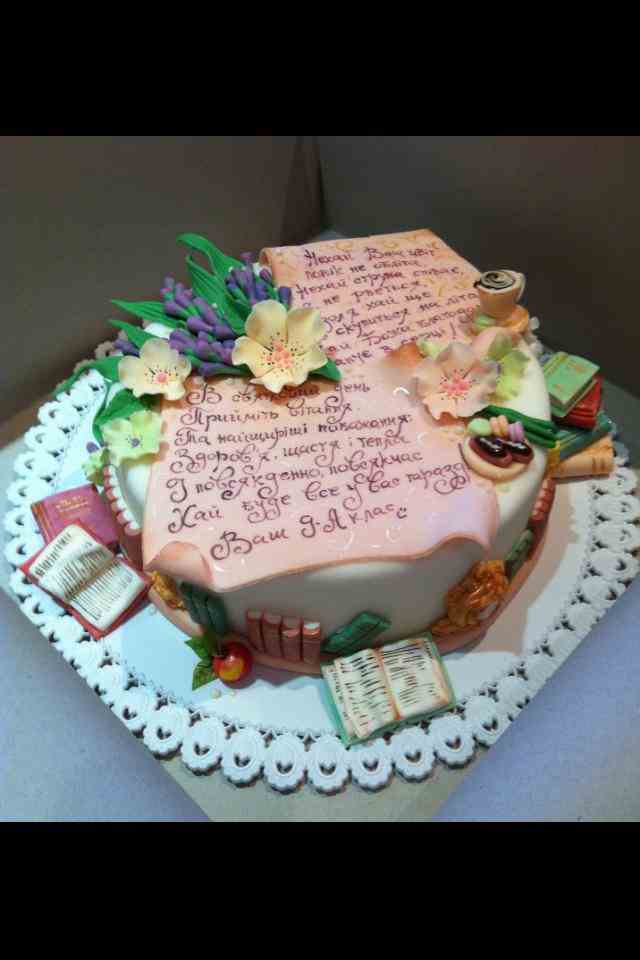 Нехай Ваш цвіт
повік не обліта,
Нехай струна співає,
а не рветься.
Зозуля хай ще
не скупиться на літа
Хай Божа благодать
в серці!
В святковий день
Прийміть вітання
Та найщиріші побажання:
Здоров'я, щастя і тепла.
І повсякденно, повсякчас
Хай буде все у Вас гаразд
Ваш 9-А клас